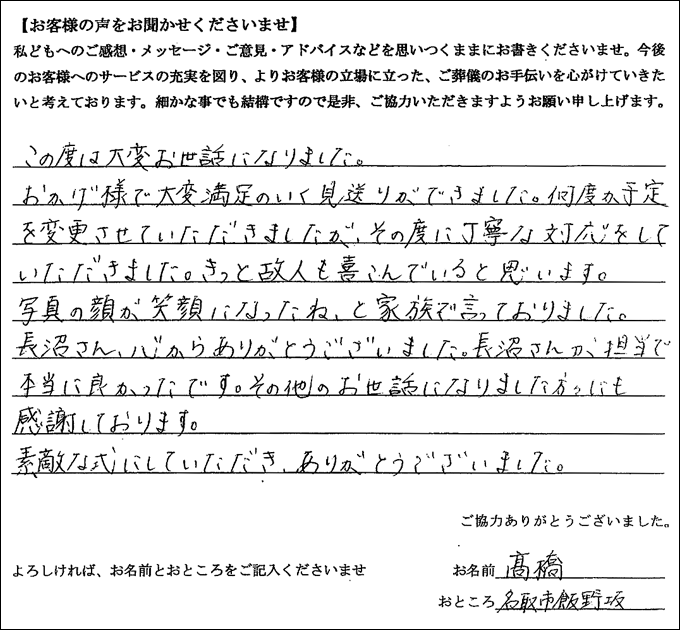 【お客様の声をお聞かせくださいませ】
私どもへのご感想・メッセージ・ご意見・アドバイスなどを思いつくままにお書きくださいませ。今後
のお客様へのサービスの充実を図り、よりお客様の立場に立った、ご葬儀のお手伝いを心がけていきた
いと考えております。細かな事でも結構ですので是非、ご協力いただきますようお願い申し上げます。
この度は大変お世話になりました。
おかげ様で大変満足のいく見送りができました。何度か予定
を変更させていただきましたが、その度に丁寧な対応をして
いただきました。きっと故人も喜こんでいると思います。
写真の顔が笑顔になったね、と家族で言っておりました。
長沼さん、心からありがとうございました。長沼さんが担当で
本当に良かったです。その他のお世話になりました方々にも
感謝しております。
素敵な式にしていただき、ありがとうございました。
ご協力ありがとうございました。
よろしければ、お名前とおところをご記入くださいませ
お名前 髙橋
おところ 名取市飯野坂